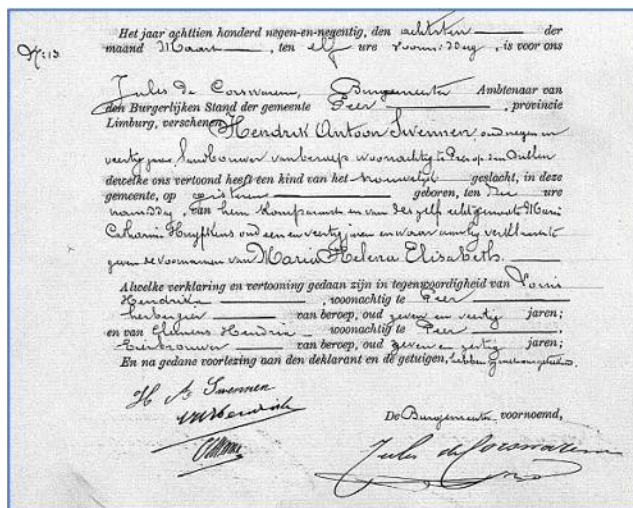 Het jaar achttien honderd negen-en-negentig, den achtsten der
N: 13
maand Maart, ten elf ure voormiddag, is voor ons
Jules de Corswarem, Burgemeester Ambtenaar van
den Burgerlijken Stand der gemeente Peer, provincie
Limburg, verschenen Hendrik Antoon Swennen, oud negen en
veertig jaren landbouwer van beroep woonachtig te Peer op den
dewelke ons vertoond heeft een kind van het vrouwelijk geslacht, in deze
gemeente, op gisteren geboren, ten drie ure
namiddag, van hem komparant en van deszelfs echtgenoote Maria
Catharina oud een en veertig jaren en waaraan hij verklaarde
geven de voornamen van Maria Helena Elisabeth.
Alwelke verklaring en vertooning gedaan zijn in tegenwoordigheid van
Hendrik, woonachtig te Peer
herbergier van beroep, oud zeven en veertig jaren;
en van Clemens Hendrix, woonachtig te Peer,
van beroep, oud zeven en jaren;
En na gedane voorlezing aan den deklarant en de getuigen, hebben
H A Swennen
De Burgemeester voornoemd,
Jules de Corswarem